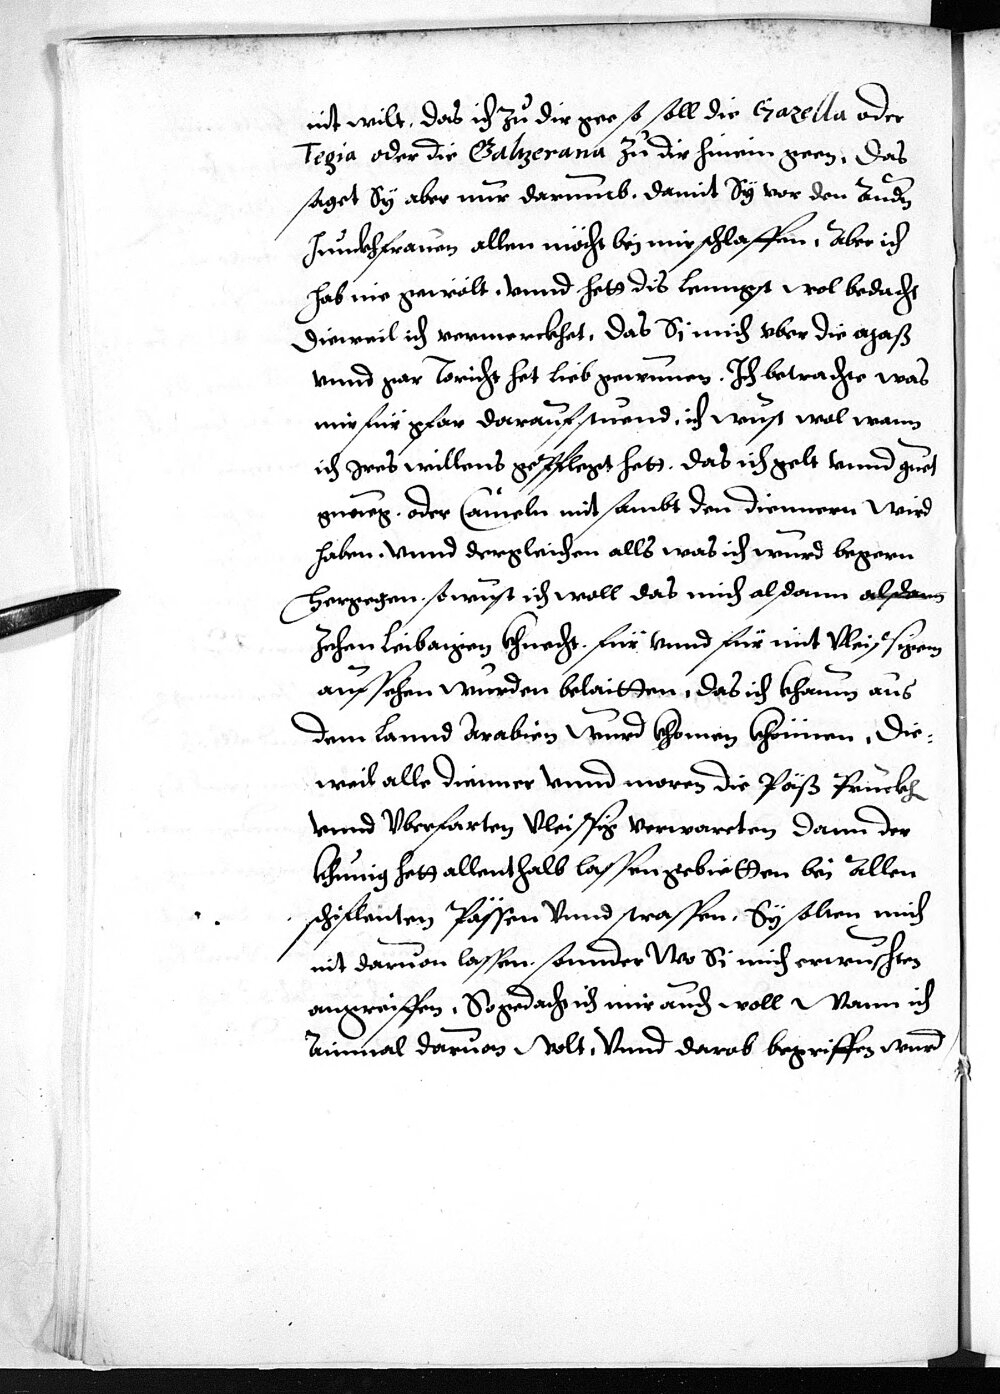 nit wilt. das ich zu dir gee so soll die Gazella oder
Tegia oder die Galzerana zu dir hinein geen, Das
saget Sÿ aber nur darumb. damit Sÿ vor den Andn
Junckhfrauen allen möcht bei mir schlaffen, Aber ich
hab nie gewölt. vnnd hett dis lenngst wol bedacht
Dieweil ich vermerckhet, das Si mich vber die maß
vnnd gar Toricht het lieb gewunnen. Ich betrachte was
mir für gfar darauf stuend, ich wust wol wann
ich Ires willens gepflegt hett. das ich gelt vnnd guet
gnueg. oder Cameln mit sambt den diennern wird
haben. vnnd dergleichen alls was ich wurd begern
Hergegen. so wust ich woll das mich alsdann alsdann
Zehen leibaigen khnecht. für vnnd für mit vleissigem
aufsehen wurden belaitten, das ich khaum aus
dem Lannd Arabien wurd khomen khönnen, Die-
weil alle dienner vnnd moren die Päß Prückh
vnnd vberfarten vleissig verwareten Dann der
khunig hett allenthalb lassen gebietten bei Allen
schiflenten Pässen vnnd strassen. Sÿ solten mich
nit daruon lassen. sonnder Wo Si mich erwuschten
angreiffen, So gedacht ich mir auch woll wann ich
Ainmal daruon wolt, vnnd darob begriffen wurd